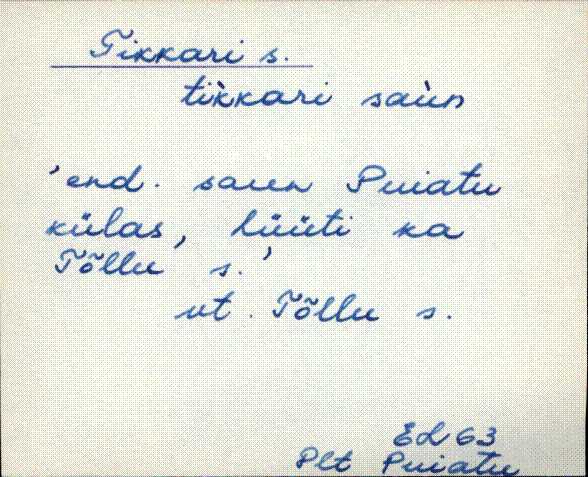 Tikkari s.
tik̀kari saùn
'end. saun Puiatu
külas, hüüti ka
Tõllu s.'
vt. Tõllu s.
Ed 63
Plt Puiatu